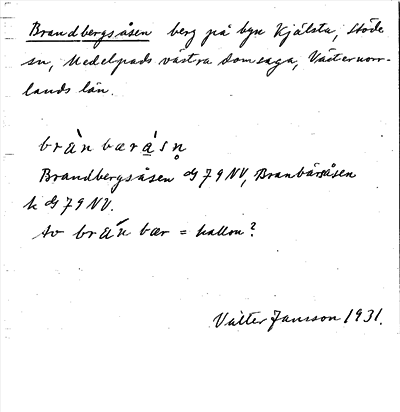 Brandbergsåsen berg på byn Kjälsta, Stöde
sn, Medelpads västra domsaga, Västernorr-
lands län.
brànbærásn̥
Brandbergsåsen G79NV, Branbäråsen
k G79NV.
Av bránbær = hallon?
Valter Jansson 1931.